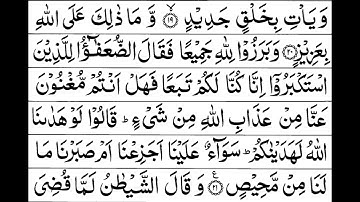 وَ یَاْتِ بِخَلْقٍ جَدِیْدٍۙ﴿۱۹﴾ وَّ مَا ذٰلِكَ عَلَى اللّٰهِ
بِعَزِیْزٍ﴿۲۰﴾ وَ بَرَزُوْا لِلّٰهِ جَمِیْعًا فَقَالَ الضُّعَفٰٓؤُا لِلَّذِیْنَ
اسْتَكْبَرُوْۤا اِنَّا كُنَّا لَكُمْ تَبَعًا فَهَلْ اَنْتُمْ مُّغْنُوْنَ
عَنَّا مِنْ عَذَابِ اللّٰهِ مِنْ شَیْءٍؕ قَالُوْا لَوْ هَدٰىنَا
اللّٰهُ لَهَدَیْنٰكُمْؕ سَوَآءٌ عَلَیْنَاۤ اَجَزِعْنَاۤ اَمْ صَبَرْنَا مَا
لَنَا مِنْ مَّحِیْصٍ﴿۲۱﴾ وَ قَالَ الشَّیْطٰنُ لَمَّا قُضِیَ